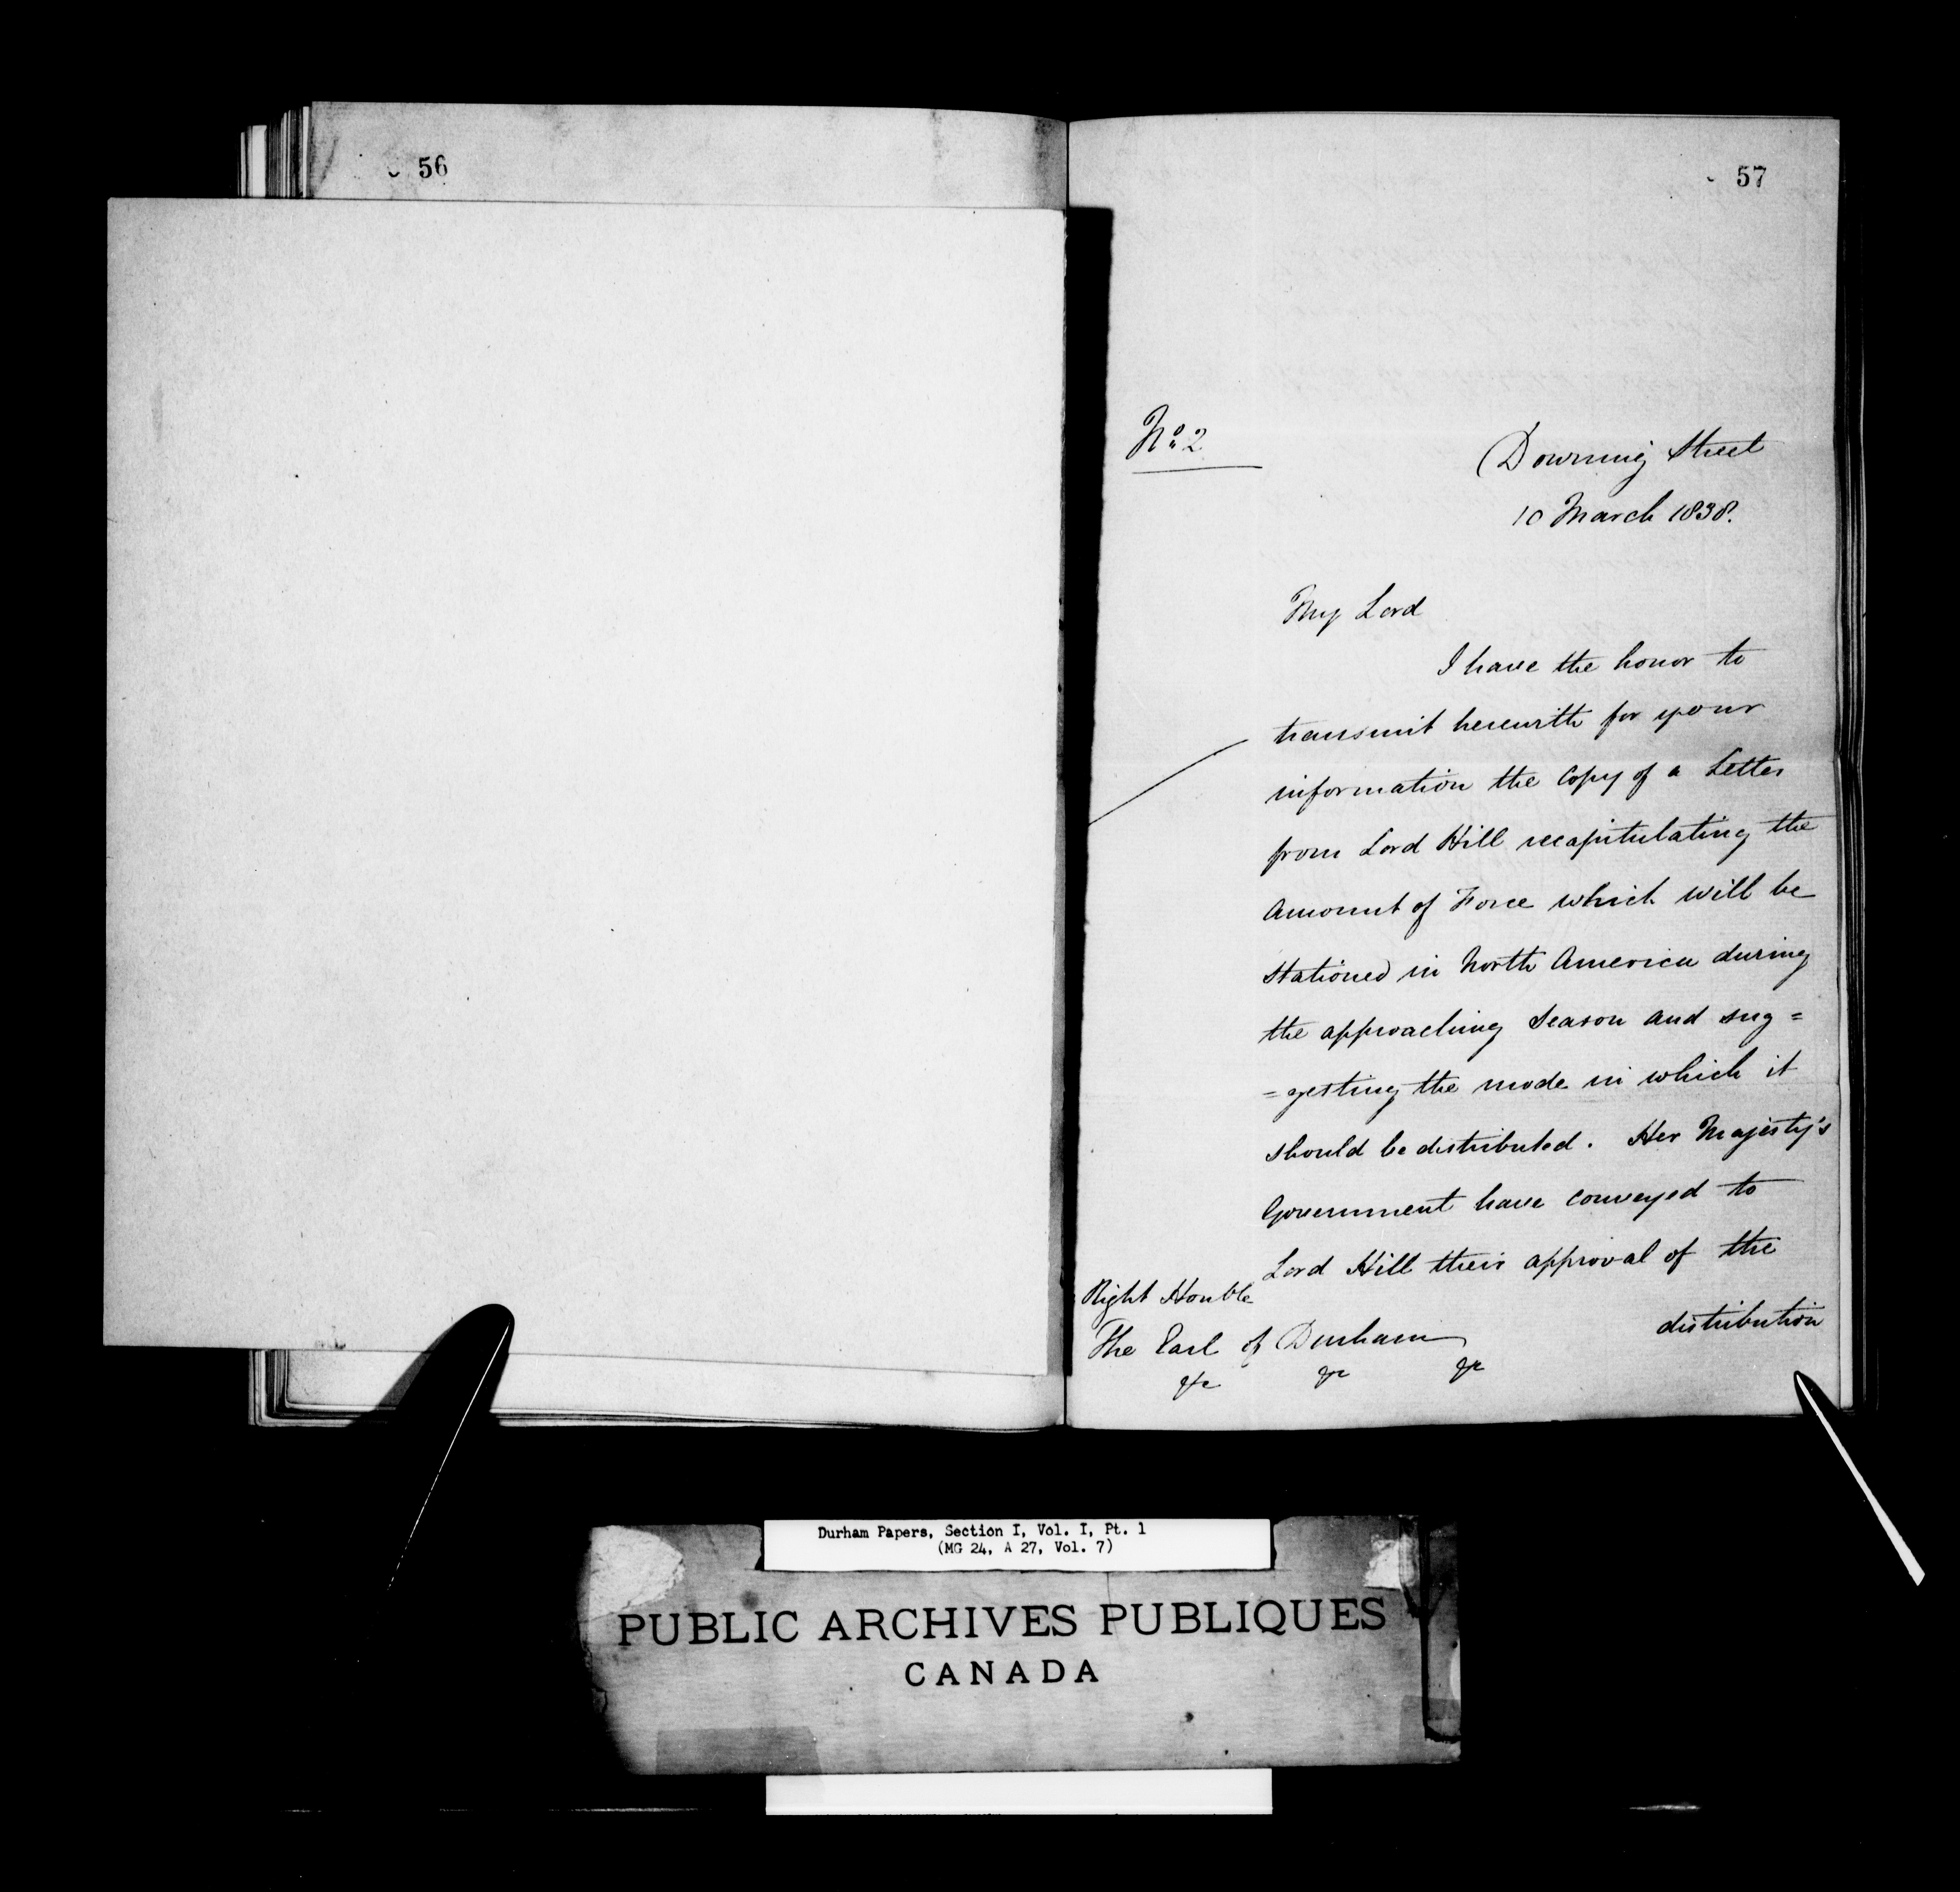 56
57
No. 2
Downing Street
10 March 1838.
My Lord
I have the honor to
transmit herewith for your
information the Copy of a Letter
from Lord Hill recapitulating the
Amount of Force which will be
stationed in North America during
the approaching Season and sug=
=gesting the mode in which it
should be distributed. Her Majesty's
Government have conveyed to
Lord Hill their approval of the
distribution
Right Honble
The Earl of Durham
&c &c &c
Durham Papers, Section I, Vol. I, Pt. 1
(MG 24, A 27, Vol. 7)
PUBLIC ARCHIVES PUBLIQUES
CANADA